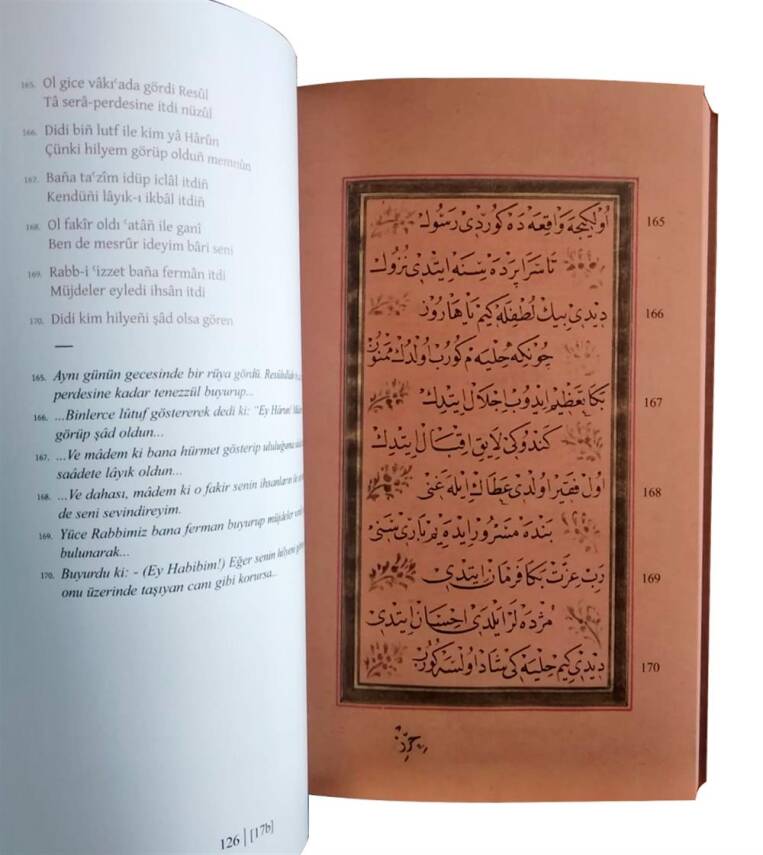 165. Ol gice vâkıʿada gördi Resûl
Tâ serâ-perdesine itdi nüzûl
166. Didi biñ lutf ile kim yâ Hârûn
Çünki hilyem görüp olduñ memnûn
167. Baña taʿzîm idüp iclâl itdiñ
Kendüñi lâyık-ı ikbâl itdiñ
168. Ol fakîr oldı ʿatâñ ile ganî
Ben de mesrûr ideyim bâri seni
169. Rabb-i ʿizzet baña fermân itdi
Müjdeler eyledi ihsân itdi
170. Didi kim hilyeñi şâd olsa gören
165. Aynı günün gecesinde bir rüya gördü. Resûlullah
perdesine kadar tenezzül buyurup...
166. ...Binlerce lûtuf göstererek dedi ki: "Ey Hârun!
görüp şâd oldun...
167. ...Ve mâdem ki bana hürmet gösterip
saâdete lâyık oldun...
168. ...Ve dahası, mâdem ki o fakir senin ihsanların ile
de seni sevindireyim.
169. Yüce Rabbimiz bana ferman buyurup müjdeler
bulunarak...
170. Buyurdu ki: - (Ey Habibim!) Eğer senin hilyeni
onu üzerinde taşıyan canı gibi korursa...
126 | [17b]
اولكیجه واقعه ده كوردی رسول 165
تا سرا پرده سنه ایتدی نزول
دیدی بیك لطفله كیم یا هارون 166
چونكه حلیه م كورب اولدك ممنون
بكا تعظیم ایدوب اجلال ایتدك 167
كندوكی لایق اقبال ایتدك
اول فقیر اولدی عطاك ایله غنی 168
بنده مسرور ایده یم باری سنی
رب عزت بكا فرمان ایتدی 169
مژده لر ایلدی احسان ایتدی
دیدی كیم حلیه كی شاد اولسه كورن 170